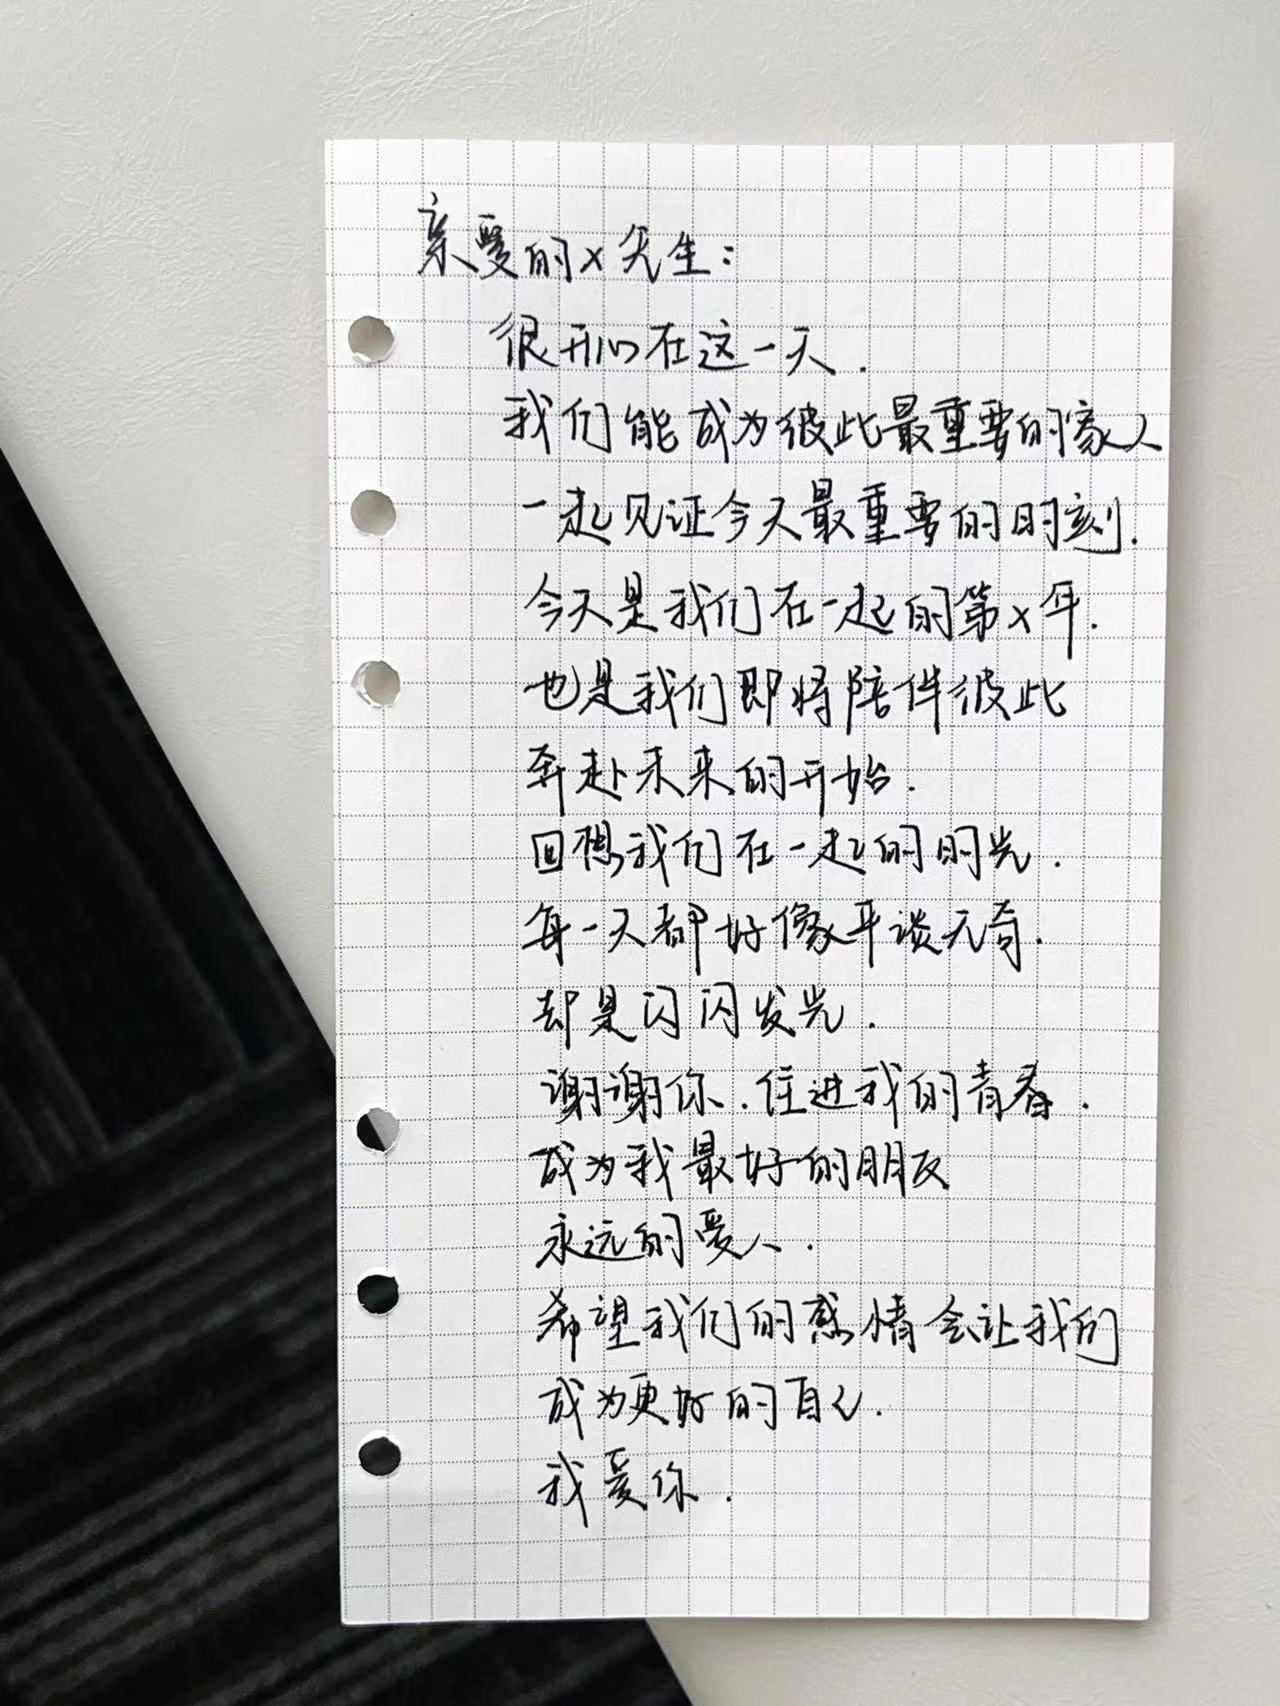 亲爱的x先生:
很开心在这一天.
我们能成为彼此最重要的家人
一起见证今天最重要的时刻.
今天是我们在一起的第x年.
也是我们即将陪伴彼此
奔赴未来的开始.
回想我们在一起的时光.
每一天都好像平谈无奇.
却是闪闪发光.
谢谢你.住进我的青春.
成为我最好的朋友
永远的爱人.
希望我们的感情会让我们
成为更好的自己.
我爱你.